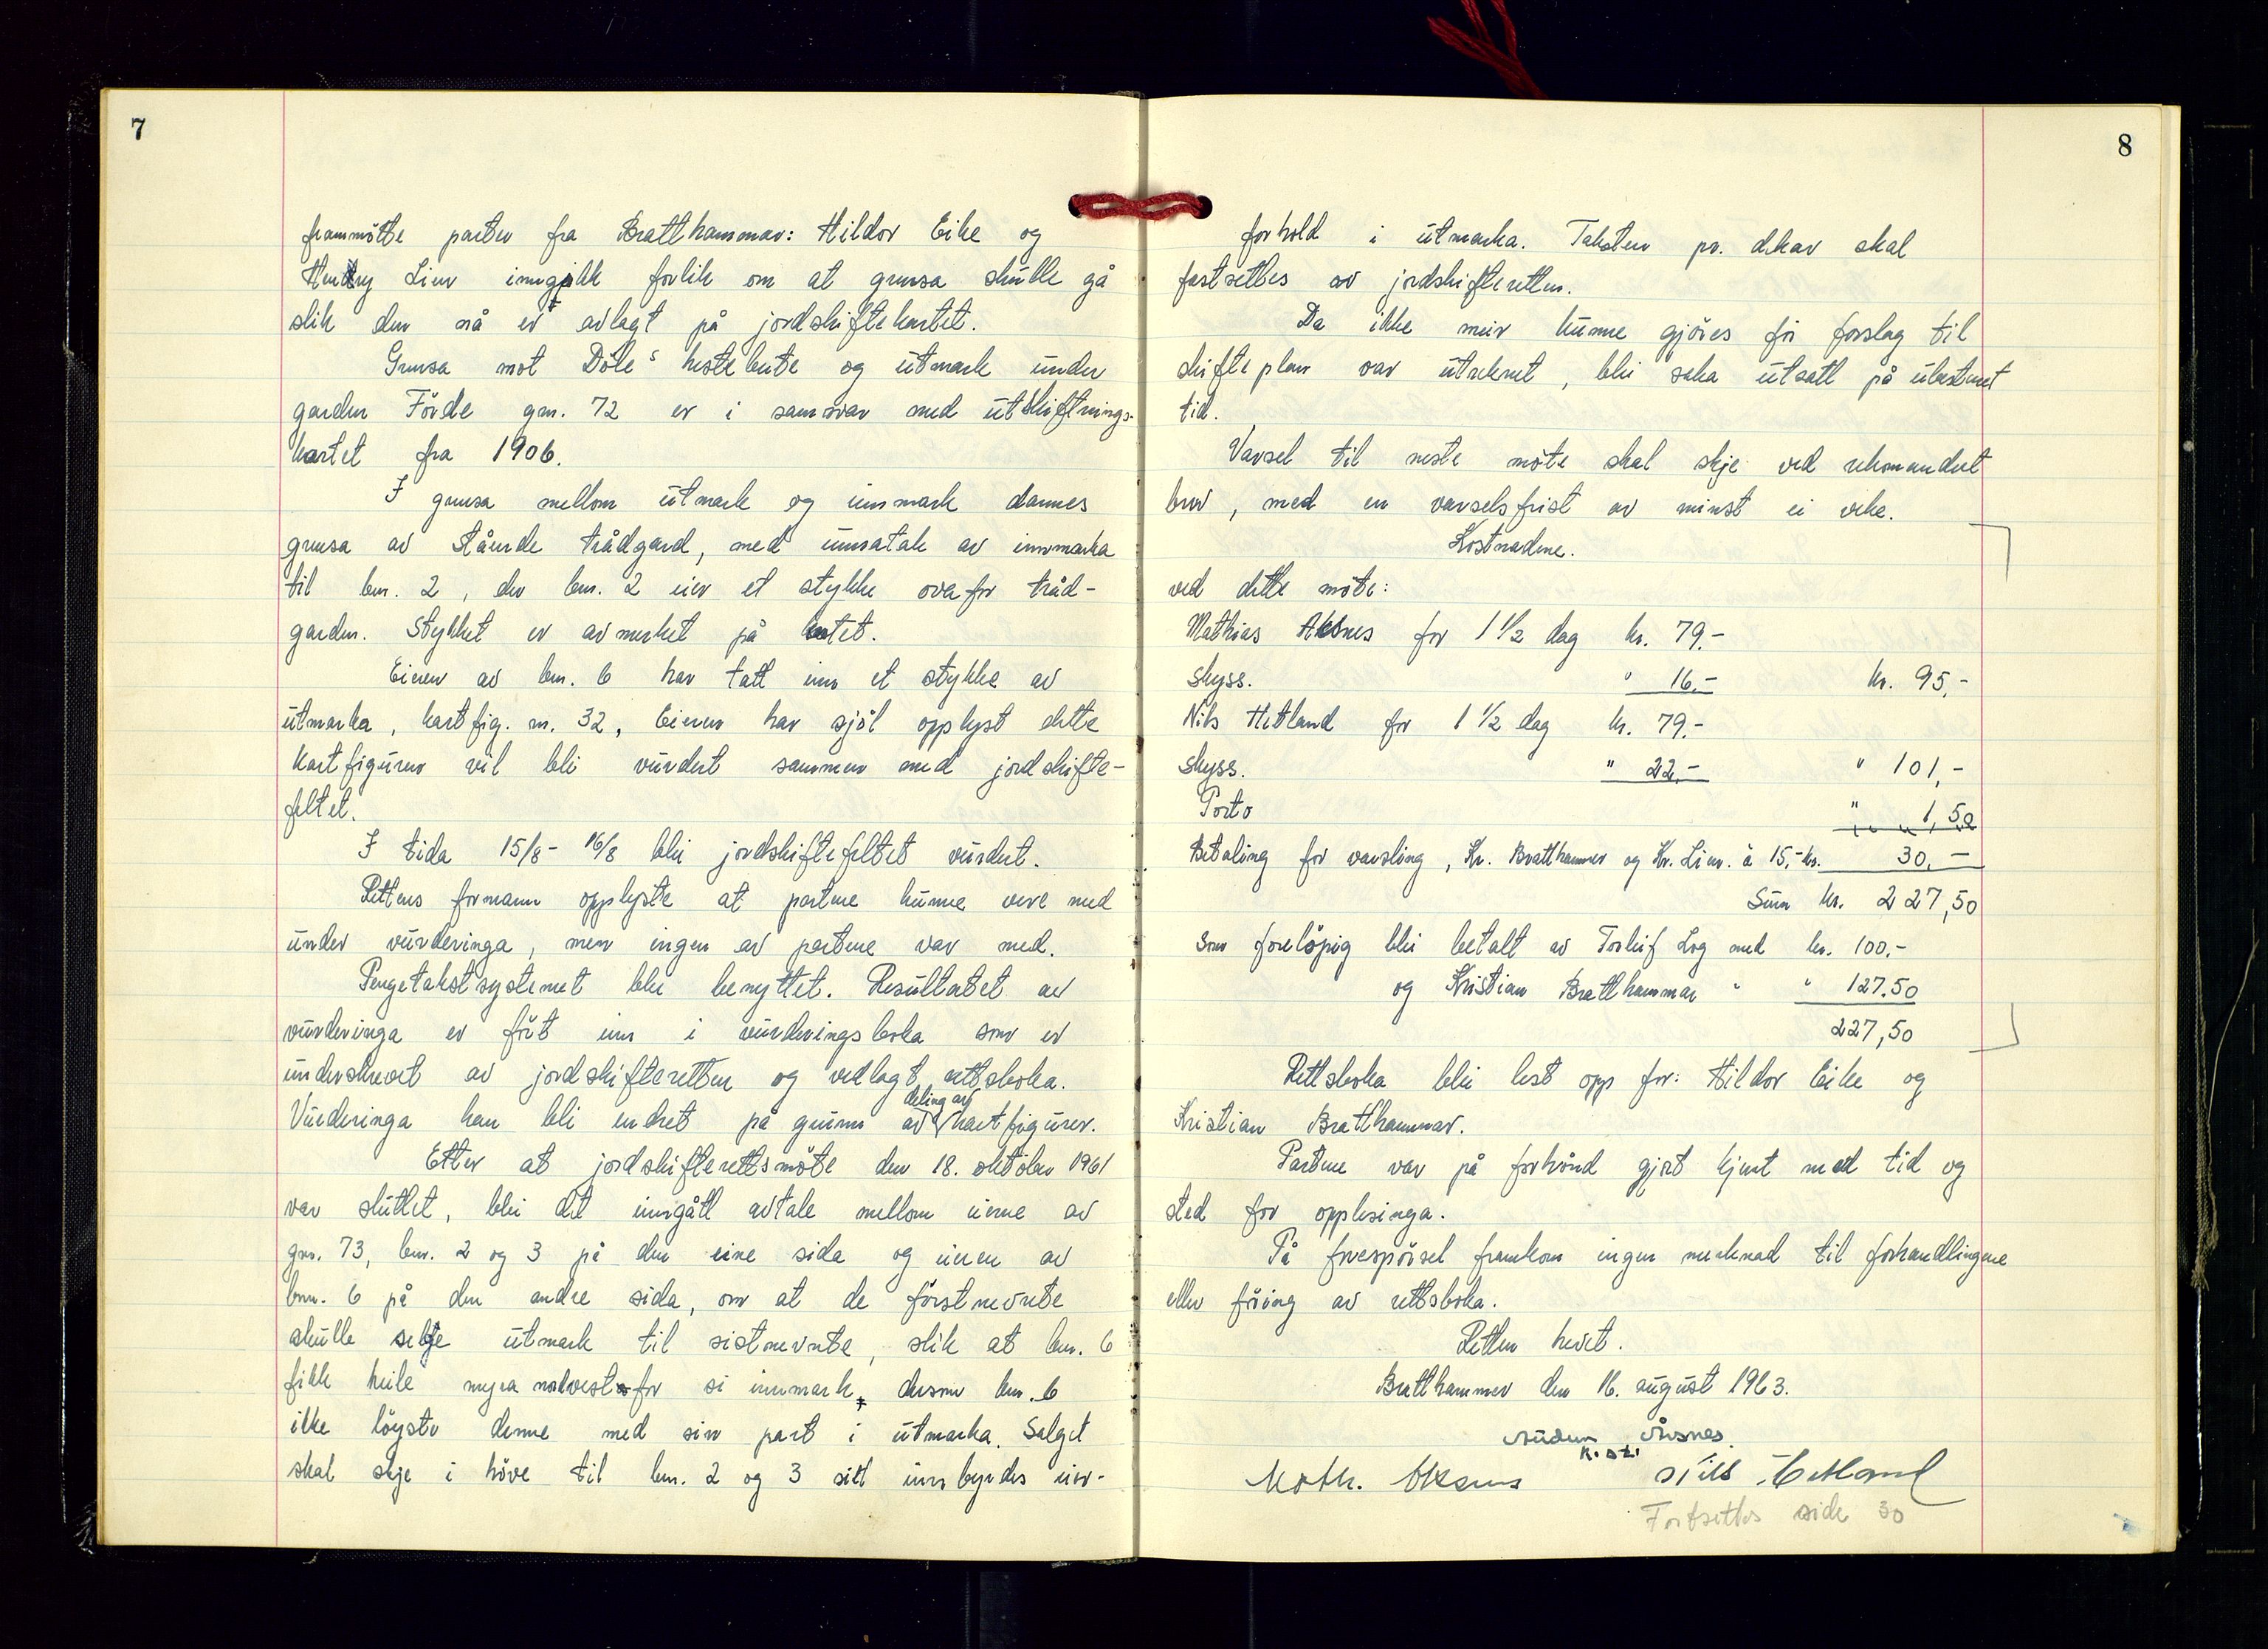 7
frammötte parter fra Bratthammar: Hildor Eike og
Henry Lien inngikk forlik om at grensa skulle gå
slik den nå er avlagt på jordskiftekartet.
Grensa mot Döle's hestebeite og utmark under
garden Förde gnr. 72 er i samsvar med utskiftnings-
kartet fra 1906.
I grensa mellom utmark og innmark dannes
grensa av stående trådgard, med unnatak av innmarka
til bnr. 2, der bnr. 2 eier et stykke ovafor tråd-
garden. Stykket er avmerket på kartet.
Eieren av bnr. 6 har tatt inn et stykke av
utmarka, kartfig. nr. 32, Eieren har sjöl opplyst dette
Kartfiguren vil bli vurdert sammen med jordskifte-
feltet.
I tida 15/8 - 16/8 blei jordskiftefeltet vurdert.
Rettens formann opplyste at partene kunne vere med
under vurderinga, men ingen av partene var med.
Pengetakstsystemet blei benyttet. Resultatet av
vurderinga er fört inn i vurderingsboka som er
underskrevet av jordskifteretten og vedlagt rettsboka.
Vurderinga kan bli endret på grunn av deling av kartfigurer.
Etter at jordskifterettsmöte den 18. oktober 1961
var sluttet, blei det inngått avtale mellom eierne av
gnr. 73, bnr. 2 og 3 på den eine sida og eieren av
bnr. 6 på den andre sida, om at de förstnevnte
skulle selge utmark til sistnevnte, slik at bnr. 6
fikk heile myra nordvest for si innmark, dersom bnr. 6
ikke löyste denne med sin part i utmarka. Salget
skal skje i höve til bnr. 2 og 3 sitt innbyrdes eier-
8
forhold i utmarka. Taksten pr. dekar skal
fastsettes av jordskifteretten.
Da ikke meir kunne gjöres för forslag til
skifteplan var utreknet, blei saka utsatt på ubestemt
tid.
Varsel til neste möte skal skje ved rekomandert
brev, med en varselsfrist av minst ei veke.
Kostnadene.
ved dette möte:
Mathias Aksnes for 1 1/2 dag kr. 79.-
skyss. " 16.- kr. 95,-
Nils Hetland for 1 1/2 dag kr. 79.-
skyss. " 22.- " 101,-
Porto " 1,50
Betaling for varsling, Kr. Bratthammer og Kr. Lien. à 15,- kr. 30.-
Sum kr. 227,50
som forelöpig blei betalt av Torleif Log med kr. 100.-
og Kristian Bratthammar " " 127.50
227,50
Rettsboka blei lest opp for: Hildor Eike og
Kristian Bratthammar.
Partene var på forhånd gjort kjent med tid og
sted for opplesinga.
På forespörsel framkom ingen merknad til forhandlingene
eller föring av rettsboka.
Retten hevet.
Bratthammer den 16. august 1963.
Audun Åsnes
K. st.
Math. Aksnes Nils Hetland
Fortsettes side 30